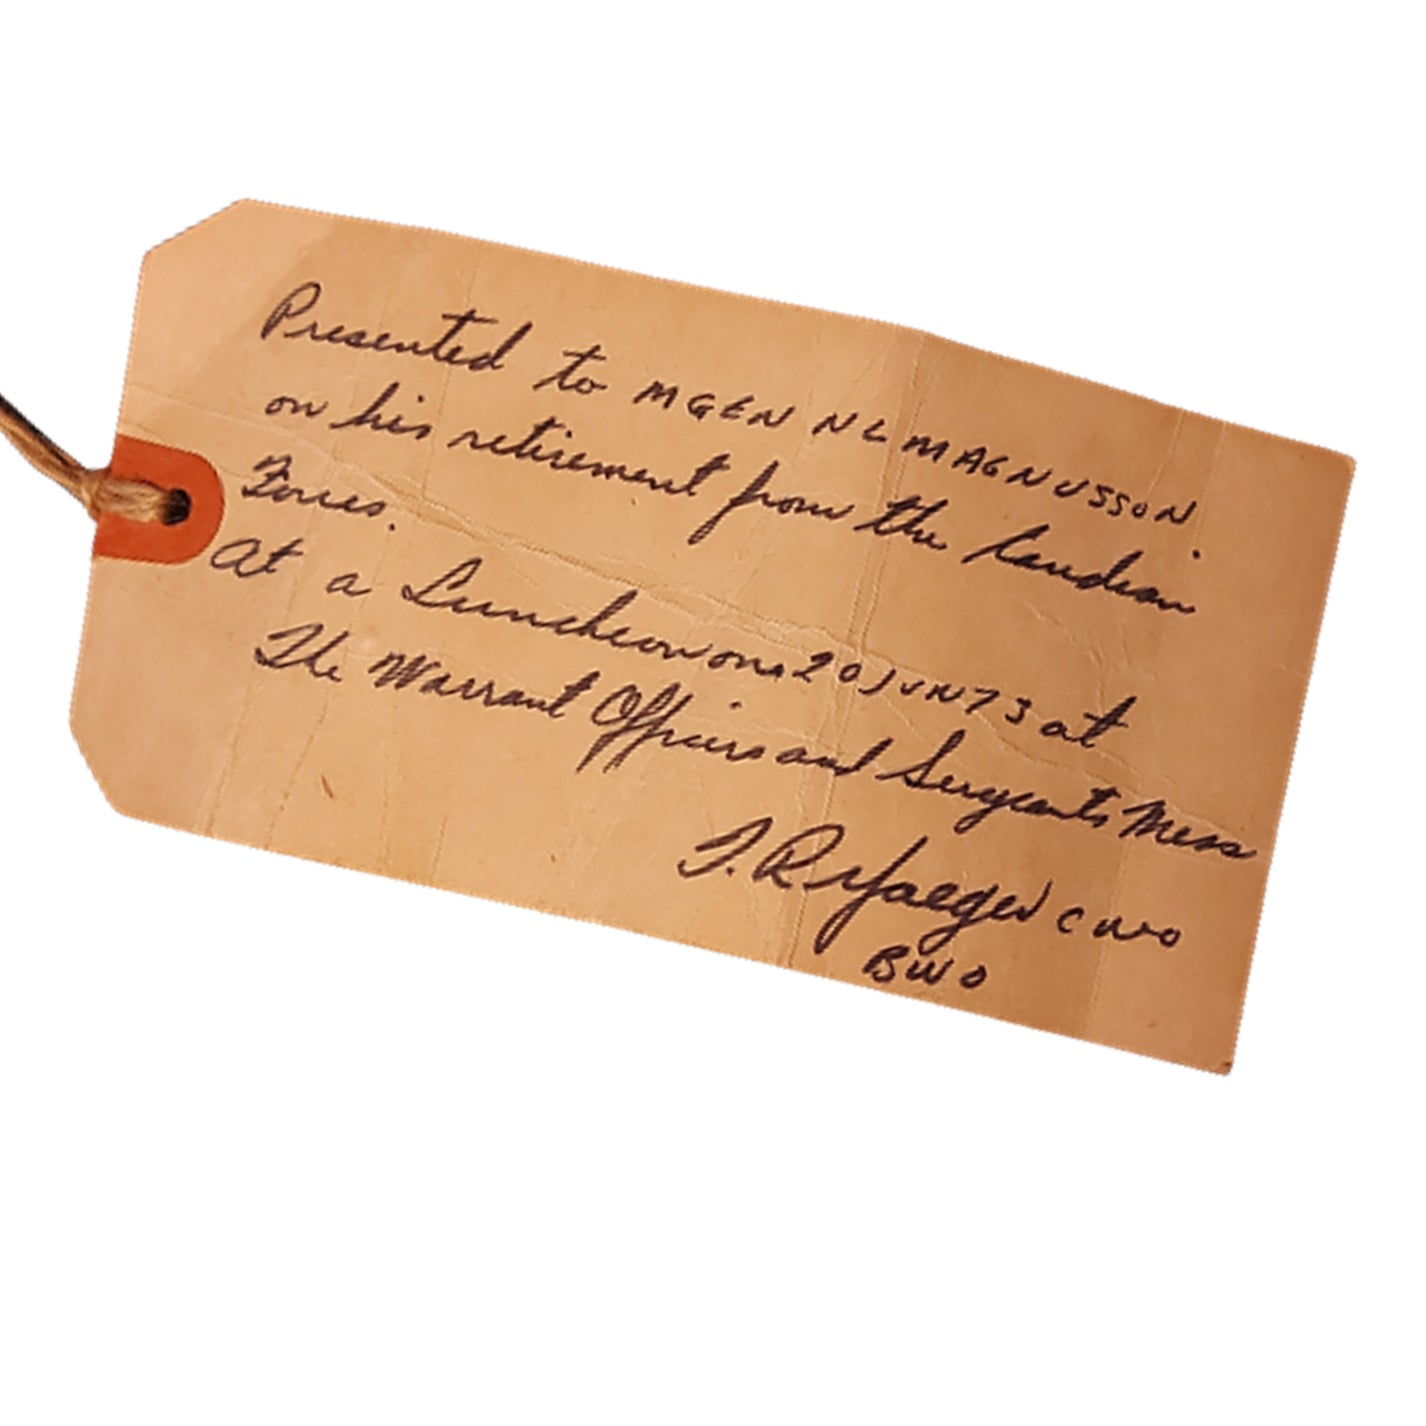 Presented to MGEN NL MAGNUSSON.
on his retirement from the Candian
Forces.
At a Luncheon on 20 JUN 73 at
The Warrant Officers and Sergeants Mess
J.R. Yaeger CWO
BWO